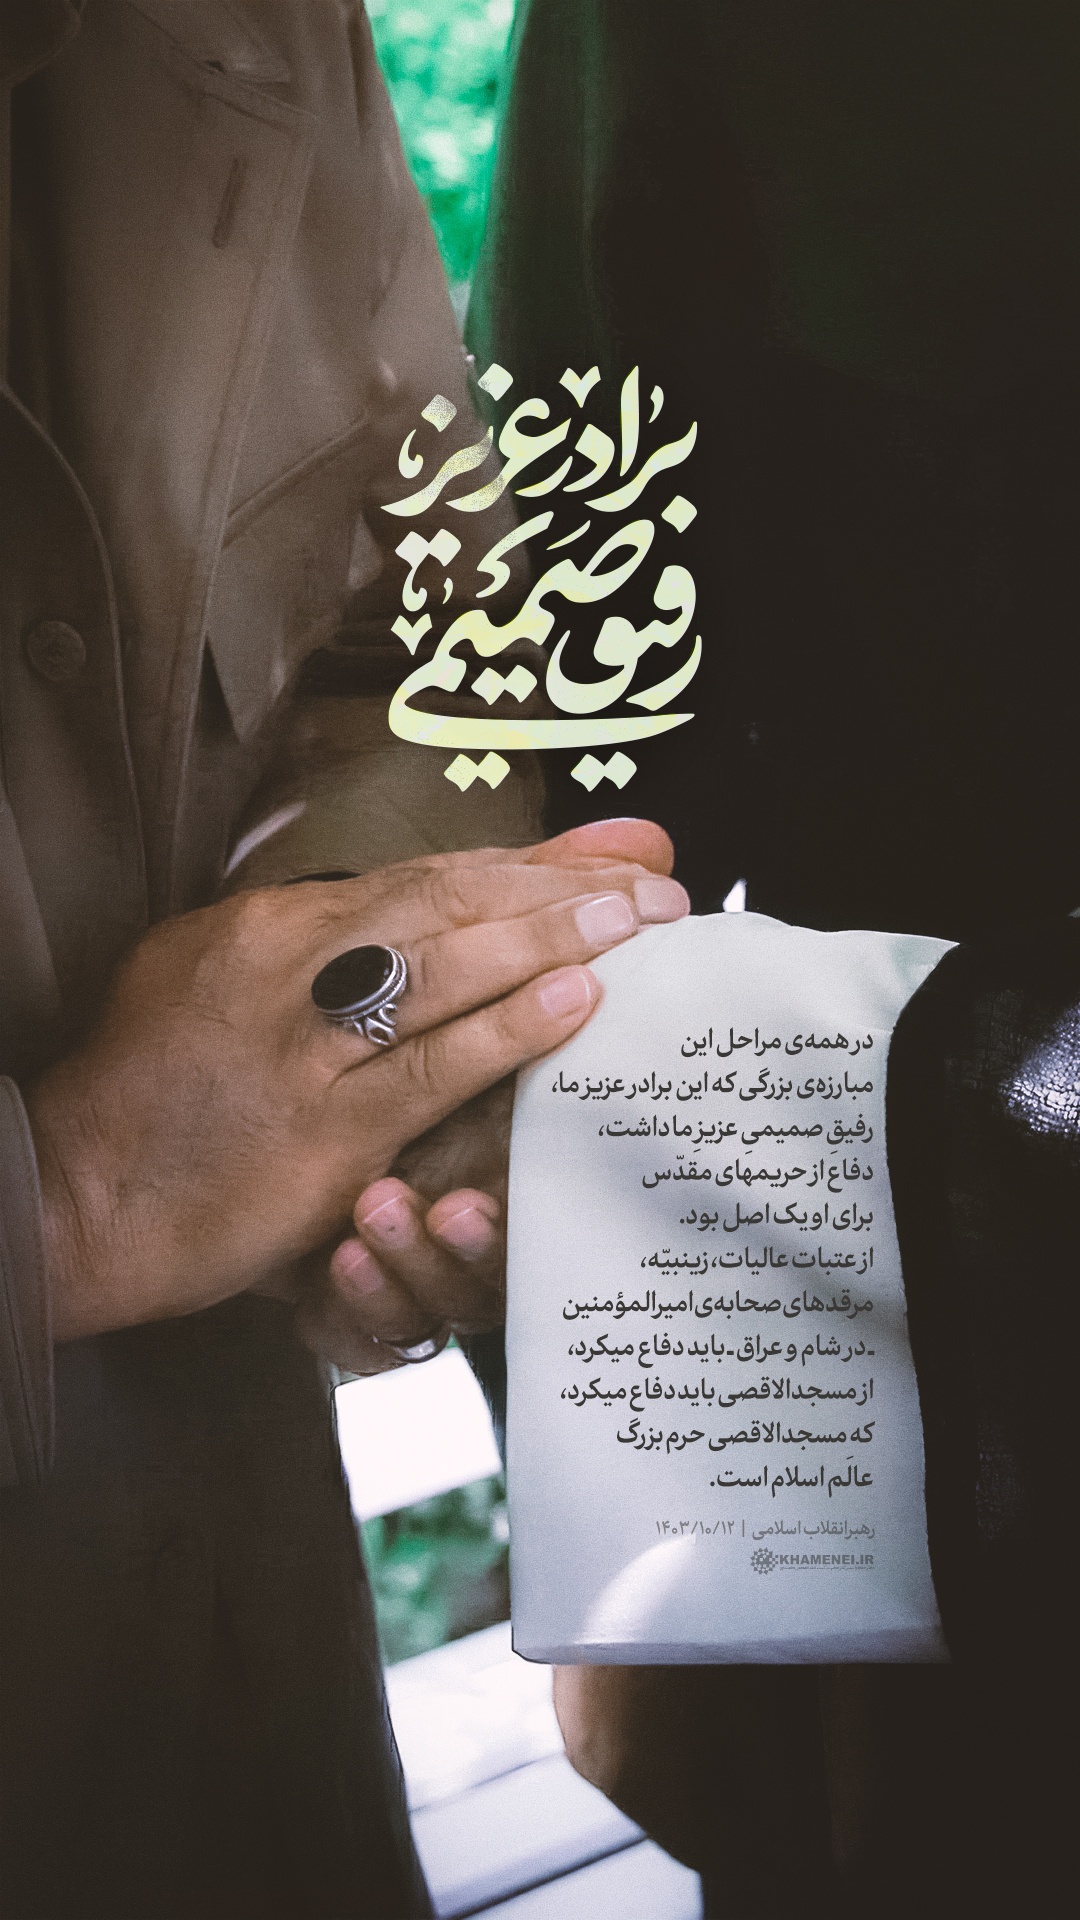 برادر عزیز
رفیق صمیمی
در همه‌ی مراحل این
مبارزه‌ی بزرگی که این برادر عزیز ما،
رفیقِ صمیمیِ عزیزِ ما داشت،
دفاع از حریمهای مقدّس
برای او یک اصل بود.
از عتبات عالیات، زینبیّه،
مرقدهای صحابه‌ی امیرالمؤمنین
ـ در شام و عراق ـ باید دفاع میکرد،
از مسجدالاقصی باید دفاع میکرد،
که مسجدالاقصی حرم بزرگ
عالَم اسلام است.
رهبر انقلاب اسلامی | ۱۴۰۳/۱۰/۱۲
KHAMENEI.IR